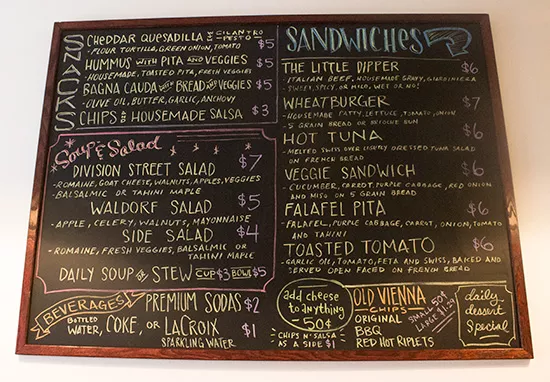 SNACKS
CHEDDAR QUESADILLA W/ CILANTRO PESTO $5
- FLOUR TORTILLA, GREEN ONION, TOMATO
HUMMUS WITH PITA AND VEGGIES $5
- HOUSEMADE, TOASTED PITA, FRESH VEGGIES
BAGNA CAUDA WITH BREAD AND VEGGIES $5
- OLIVE OIL, BUTTER, GARLIC, ANCHOVY
CHIPS AND HOUSEMADE SALSA $3
Soup & Salad
DIVISION STREET SALAD $7
- ROMAINE, GOAT CHEESE, WALNUTS, APPLES, VEGGIES
BALSALMIC OR TAHINI MAPLE
WALDORF SALAD $5
- APPLE, CELERY, WALNUTS, MAYONNAISE
SIDE SALAD $4
- ROMAINE, FRESH VEGGIES, BALSALMIC OR
TAHINI MAPLE
DAILY SOUP OR STEW CUP $3 BOWL $5
BEVERAGES
PREMIUM SODAS $2
BOTTLED WATER, COKE, OR LACROIX SPARKLING WATER $1
SANDWICHES
THE LITTLE DIPPER $6
- ITALIAN BEEF, HOUSEMADE GRAVY, GIARDINIERA
SWEET, SPICY, OR MILD. WET OR NO!
WHEATBURGER $7
- HOUSEMADE PATTY, LETTUCE, TOMATO, ONION
5 GRAIN BREAD OR BRIOCHE BUN
HOT TUNA $6
- MELTED SWISS OVER LIGHTLY DRESSED TUNA SALAD
ON FRENCH BREAD
VEGGIE SANDWICH $6
- CUCUMBER, CARROT, PURPLE CABBAGE, RED ONION
AND MISO ON 5 GRAIN BREAD
FALAFEL PITA $6
- FALAFEL, PURPLE CABBAGE, CARROT, ONION, TOMATO
AND TAHINI
TOASTED TOMATO $6
- GARLIC OIL, TOMATO, FETA AND SWISS, BAKED AND
SERVED OPEN FACED ON FRENCH BREAD
add cheese
to anything
- 50¢ -
CHIPS N' SALSA
AS A SIDE $1
OLD VIENNA
- CHIPS -
ORIGINAL
BBQ
RED HOT RIPLETS
SMALL 50¢
LARGE $1.29
daily
dessert
Special